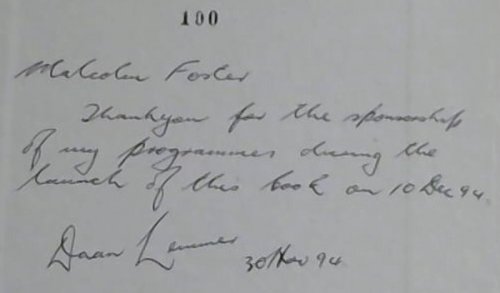 100
Malcolm Foster
Thankyou for the sponsorship
of my programmes during the
launch of this book on 10 Dec 94.
Daan Lemmer
30 Nov 94